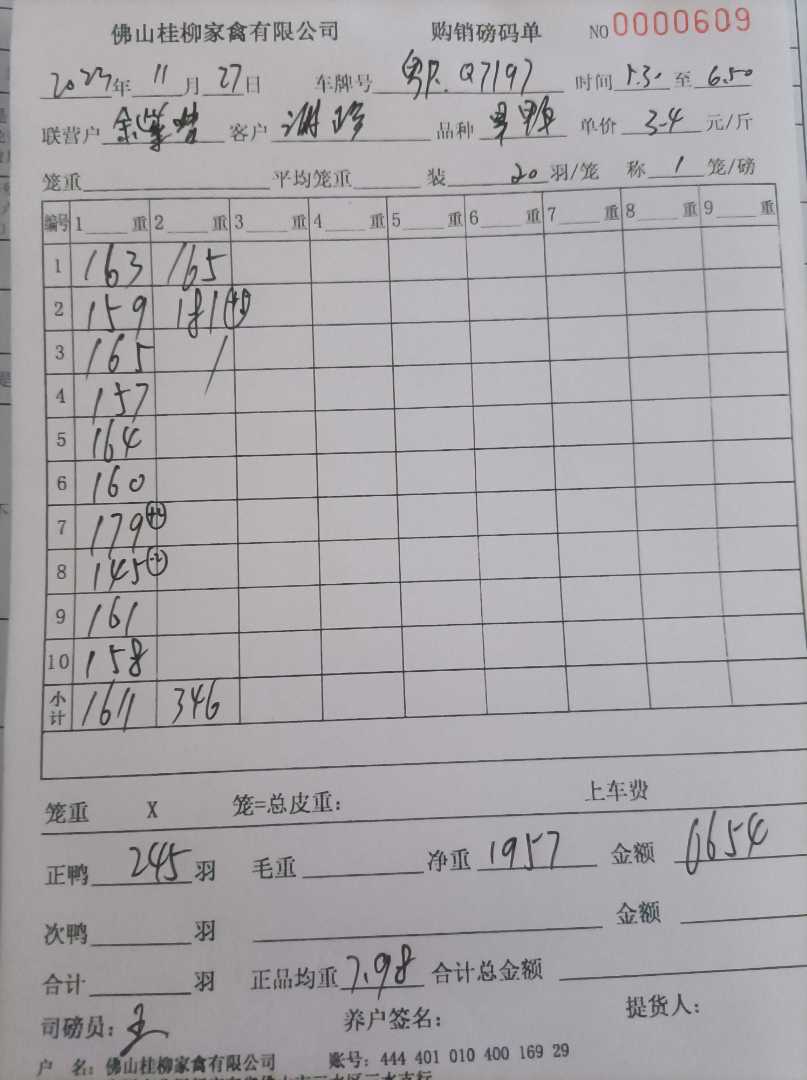 佛山桂柳家禽有限公司 购销磅码单 NO 0000609
2023年 11月 27日 车牌号 粤R.Q7197 时间 5.30 至 6.50
联营户 客户 谢珍 品种 单价 3.4 元/斤
笼重 平均笼重 装 20 羽/笼 称 1 笼/磅
编号 1 重 2 重 3 重 4 重 5 重 6 重 7 重 8 重 9 重
1 163 165
2 159 181
3 165 /
4 157
5 164
6 160
7 179 +2
8 145 -2
9 161
10 158
小计 1611 346
笼重 X 笼=总皮重: 上车费
正鸭 245 羽 毛重 净重 1957 金额 6654
次鸭 羽 金额
合计 羽 正品均重 7.98 合计总金额
司磅员: 养户签名: 提货人:
户 名: 佛山桂柳家禽有限公司 账号: 444 401 010 400 169 29